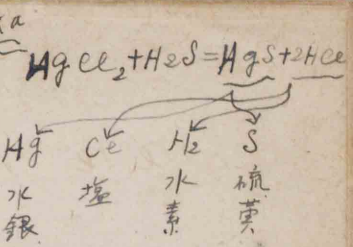 HgCl₂+H2S=HgS+2HCl
Hg Cl H₂ S
水銀 塩 水素 硫黄